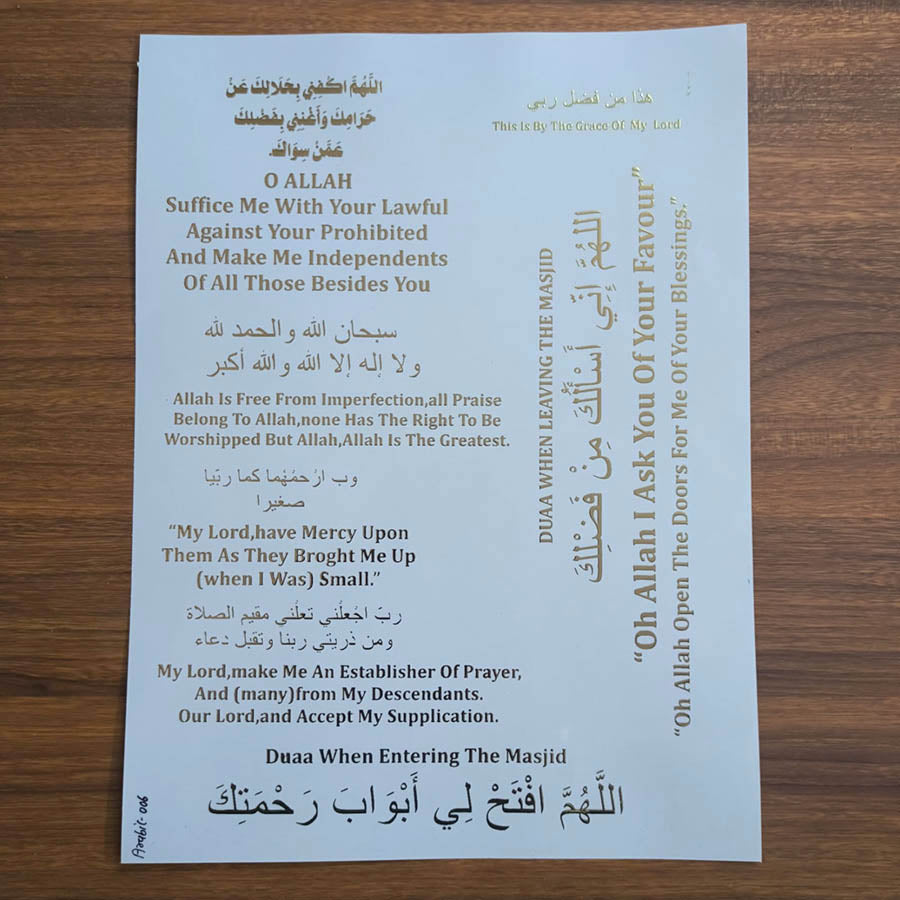 اللَّهُمَّ اكْفِنِي بِحَلَالِكَ عَنْ
حَرَامِكَ وَأَغْنِنِي بِفَضْلِكَ
عَمَّنْ سِوَاكَ.
O ALLAH
Suffice Me With Your Lawful
Against Your Prohibited
And Make Me Independents
Of All Those Besides You
سبحان الله والحمد لله
ولا إله إلا الله والله أكبر
Allah Is Free From Imperfection,all Praise
Belong To Allah,none Has The Right To Be
Worshipped But Allah,Allah Is The Greatest.
وب ارُحمُهُما كما ربّيا
صغيرا
“My Lord,have Mercy Upon
Them As They Broght Me Up
(when I Was) Small.”
ربّ اجُعلُني تعلُني مقيم الصلاة
ومن ذريتي ربنا وتقبل دعاء
My Lord,make Me An Establisher Of Prayer,
And (many)from My Descendants.
Our Lord,and Accept My Supplication.
Duaa When Entering The Masjid
اللَّهُمَّ افْتَحْ لِي أَبْوَابَ رَحْمَتِكَ
هذا من فضل ربي
This Is By The Grace Of My Lord
DUAA WHEN LEAVING THE MASJID
اللهُمَّ إِنِّي أَسْأَلُكَ مِنْ فَضْلِكَ
“Oh Allah I Ask You Of Your Favour”
“Oh Allah Open The Doors For Me Of Your Blessings.”
Arabic-006